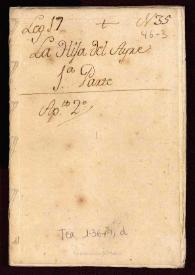 Leg 17 + N. 35
46-3
La Hija del Ayre
1.ª Parte
Ap.to 2.º
Tea 1-36-9, d